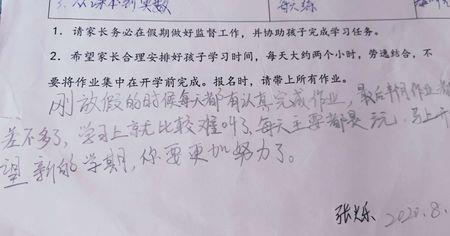 每天练
1. 请家长务必在假期做好监督工作，并协助孩子完成学习任务。
2. 希望家长合理安排好孩子学习时间，每天大约两个小时，劳逸结合，不
要将作业集中在开学前完成。报名时，请带上所有作业。
刚放假的时候每天都有认真完成作业，最后半月作业
差不多了，学习上就比较难叫了，每天主要都是玩，马上开
望新的学期，你要更加努力了。
2020.8.